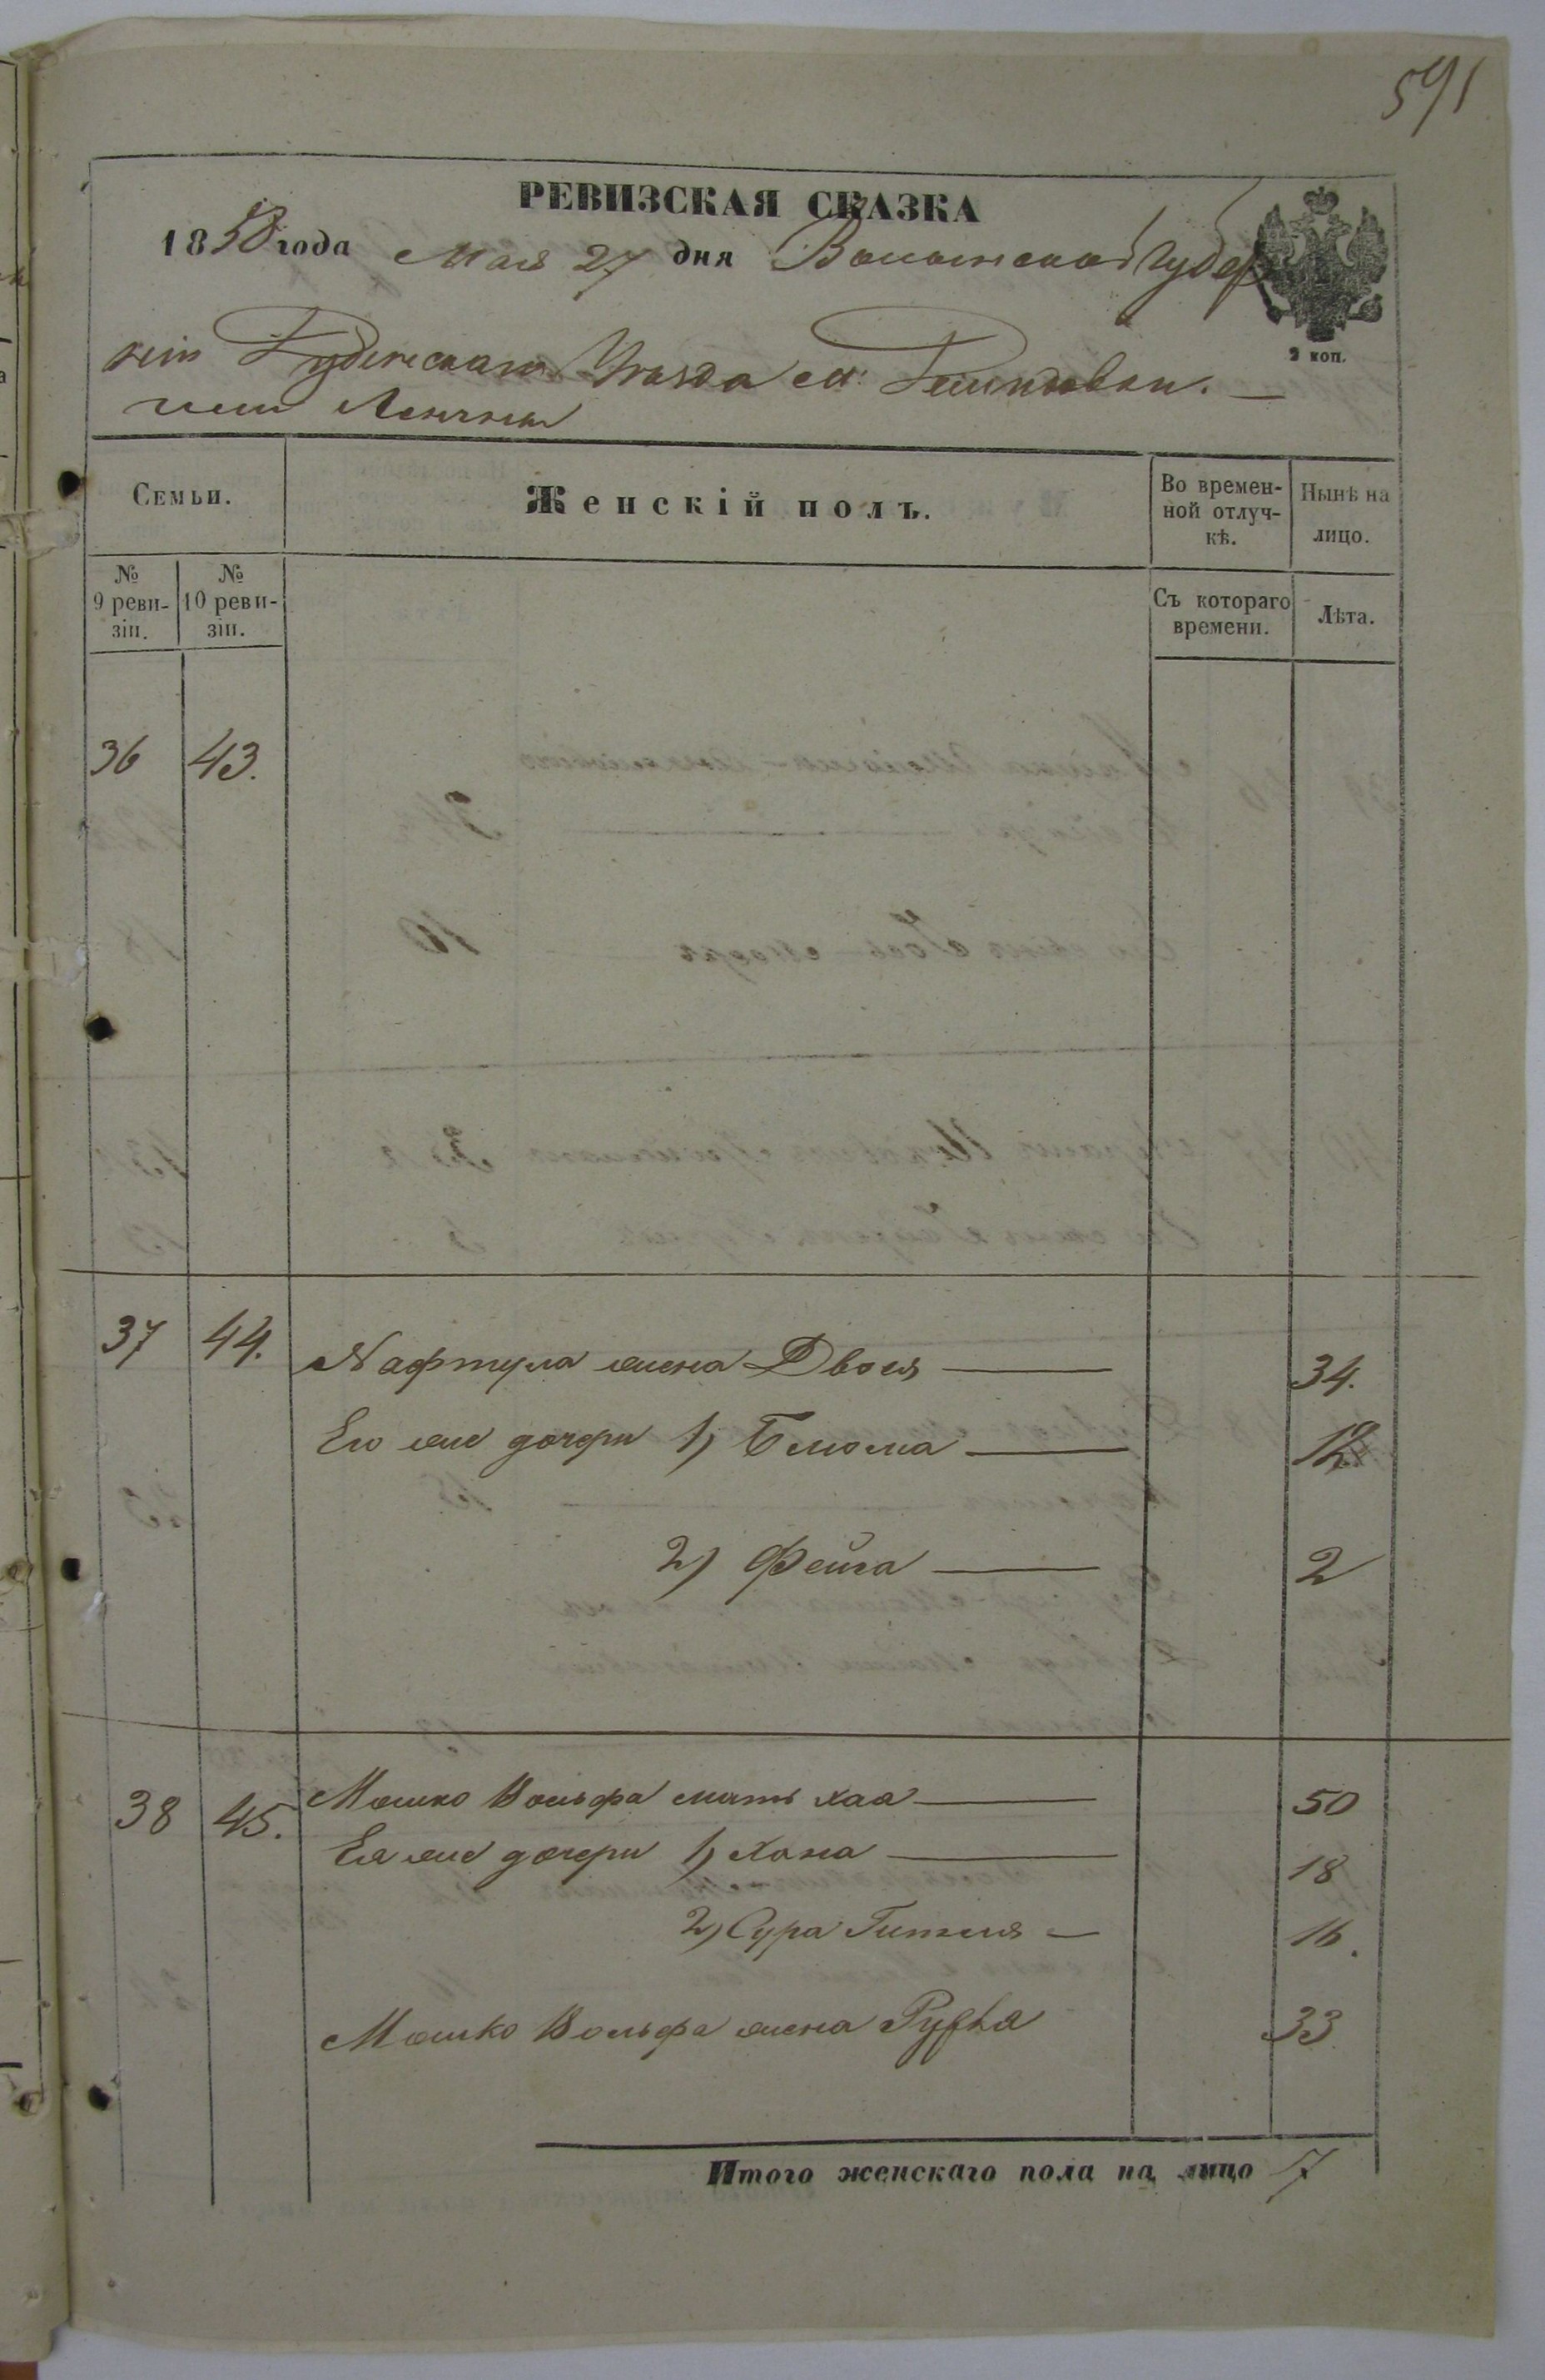 591
РЕВИЗСКАЯ СКАЗКА
1858 года Мая 27 дня Волынской Губер
ніи Дубенскаго Уезда м:
2 коп.
или
Семьи.
Женскій полъ.
Во времен-
ной отлуч-
кѣ.
Нынѣ на
лицо.
№
9 реви-
зіи.
№
10 реви-
зіи.
Съ котораго
времени.
Лѣта.
36 43.
37 44. Нафтула жена Двося 34.
Его же дочери 1) Блюма 12
2) Фейга 2
38 45. Мошко Вольфа мать Хая 50
Ея же дочери 1) Хана 18
2) Сура Гитля 16.
Мошко Вольфа жена Рухля 33
Итого женскаго пола на лицо 7